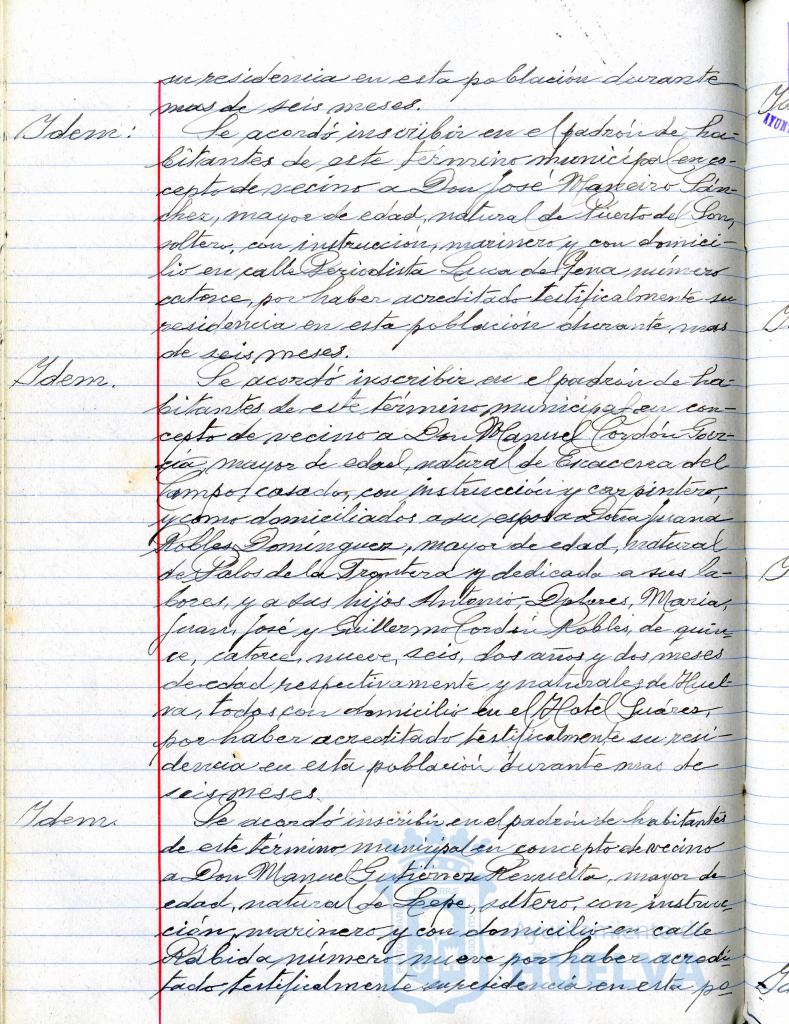 su residencia en esta población durante
mas de seis meses.
Idem:
Se acordó inscribir en el padrón de ha-
bitantes de este término municipal en co-
cepto de vecino a Don José Maneiro Sán-
chez, mayor de edad, natural de Puerto del Son,
soltero, con instrucción, marinero y con domici-
lio en calle Periodista Luca de Tena, número
catorce, por haber acreditado testificalmente su
residencia en esta población durante mas
de seis meses.
Idem.
Se acordó inscribir en el padrón de ha-
bitantes de este término municipal en con-
cepto de vecino a Don Manuel Cordón Gar-
cía, mayor de edad, natural de Escacena del
Campo, casado, con instrucción y carpintero,
y como domiciliados a su esposa Doña Juana
Robles Domínguez, mayor de edad, natural
de Palos de la Frontera y dedicada a sus la-
bores, y a sus hijos Antonio, Dolores, María,
Juan, José y Guillermo Cordón Robles, de quin-
ce, catorce, nueve, seis, dos años y dos meses
de edad respectivamente y naturales de Huel-
va, todos con domicilio en el Hotel Suárez,
por haber acreditado testificalmente su resi-
dencia en esta población durante mas de
seis meses.
Idem.
Se acordó inscribir en el padrón de habitantes
de este término municipal en concepto de vecino
a Don Manuel Gutiérrez Revuelta, mayor de
edad, natural de Lepe, soltero, con instruc-
ción, marinero y con domicilio en calle
Rábida número nueve por haber acredi-
tado testificalmente su residencia en esta po-
Ayuntamiento de
HUELVA